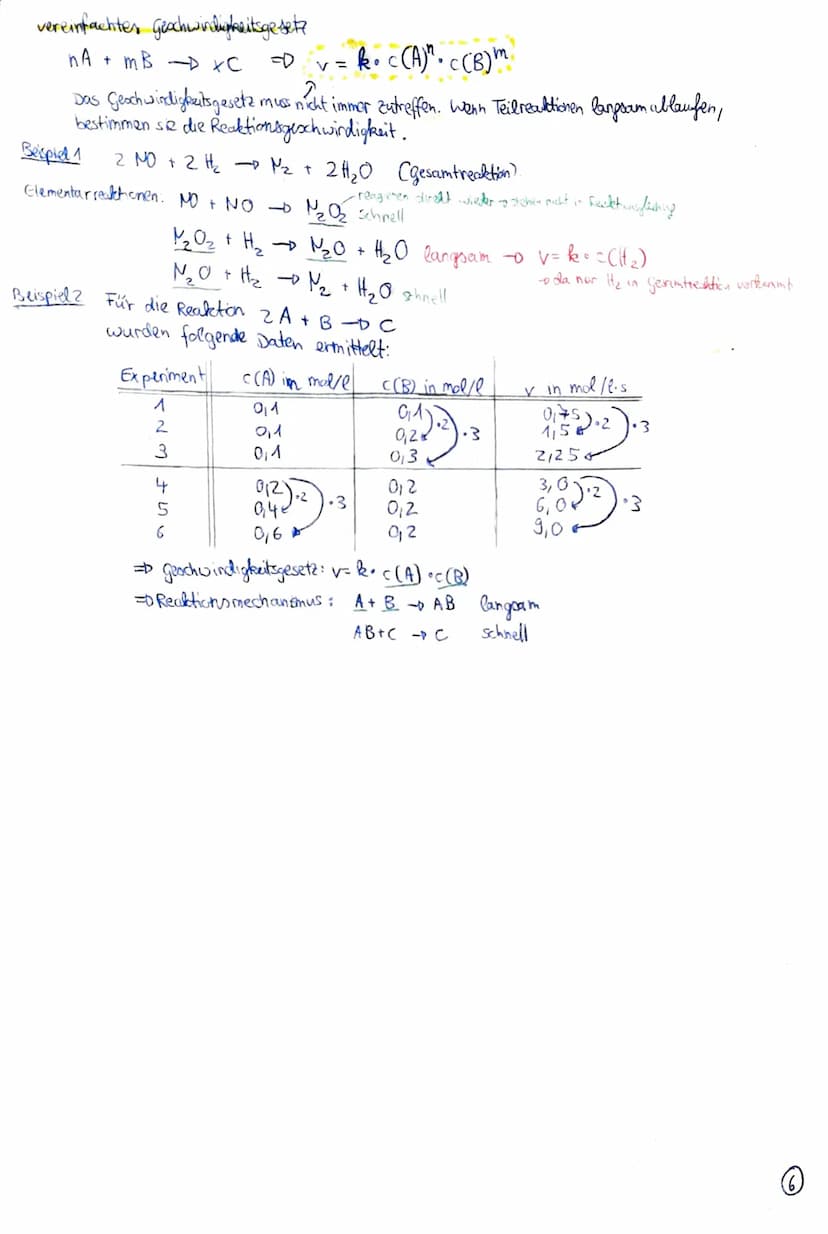 vereinfachtes Geschwindigkeitsgesetz
nA + mB → xC ⇒ v = k • c(A)ⁿ • c(B)ᵐ
Das Geschwindigkeitsgesetz muss nicht immer zutreffen. Wenn Teilreaktionen langsam ablaufen,
bestimmen sie die Reaktionsgeschwindigkeit.
Beispiel 1 2 NO + 2 H₂ → N₂ + 2H₂O (Gesamtreaktion)
Elementarreaktionen: NO + NO → N₂O₂ schnell
reagieren direkt wieder → nicht in
N₂O₂ + H₂ → N₂O + H₂O langsam → v = k • c(H₂)
→ da nur H₂ in Gesamtreaktion vorkommt
N₂O + H₂ → N₂ + H₂O schnell
Beispiel 2 Für die Reaktion 2A + B → C
wurden folgende Daten ermittelt:
Experiment c(A) in mol/l c(B) in mol/l v in mol/l·s
1 0,1 0,1 0,75
2 0,1 0,2 ·2 ·3 1,5 ·2 ·3
3 0,1 0,3 2,25
4 0,2 0,2 3,0
5 0,4 ·2 ·3 0,2 6,0 ·2 ·3
6 0,6 0,2 9,0
⇒ Geschwindigkeitsgesetz: v = k • c(A) • c(B)
⇒ Reaktionsmechanismus: A + B → AB langsam
AB + C → C schnell
6